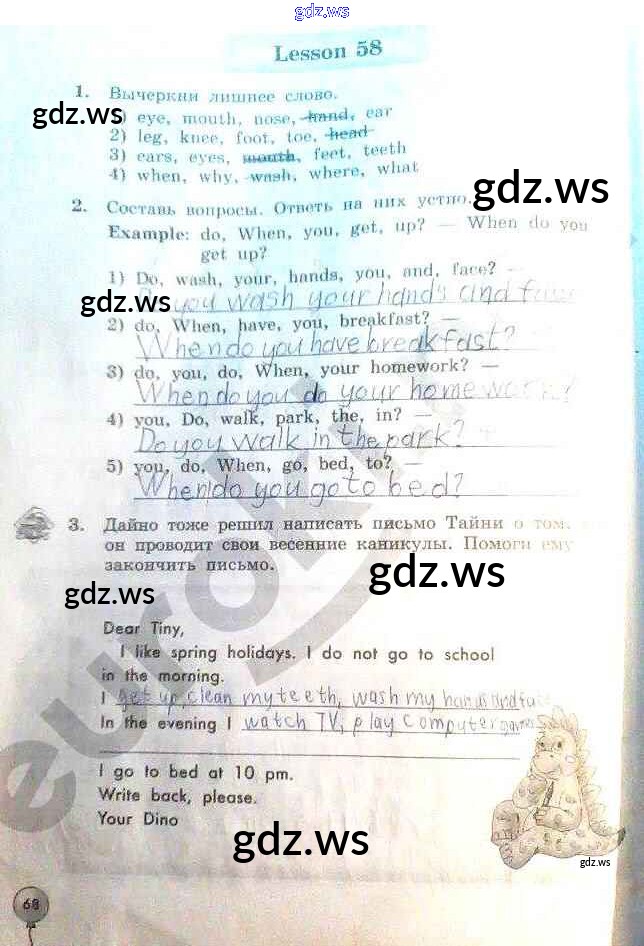 gdz.ws
Lesson 58
1. Вычеркни лишнее слово.
gdz.ws
1) eye, mouth, nose, hand, ear
2) leg, knee, foot, toe, head
3) ears, eyes, mouth, feet, teeth
4) when, why, wash, where, what
gdz.ws
2. Составь вопросы. Ответь на них устно.
Example: do, When, you, get, up? — When do you
get up?
1) Do, wash, your, hands, you, and, face? —
gdz.ws
Do you wash your hands and face
2) do, When, have, you, breakfast? —
When do you have breakfast?
3) do, you, do, When, your homework? —
When do you do your homework?
4) you, Do, walk, park, the, in? —
Do you walk in the park?
5) you, do, When, go, bed, to? —
When do you go to bed?
3. Дайно тоже решил написать письмо Тайни о том,
он проводит свои весенние каникулы. Помоги ему
закончить письмо.
gdz.ws
gdz.ws
euroki
Dear Tiny,
I like spring holidays. I do not go to school
in the morning.
I get up, clean my teeth, wash my hands and face
In the evening I watch TV, play computer games
I go to bed at 10 pm.
Write back, please.
Your Dino
gdz.ws
gdz.ws
68